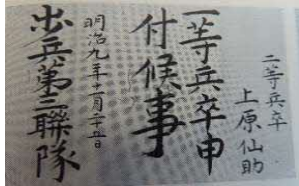 二等兵卒
上原仙助
一等兵卒申
付候事
明治九年十二月二十五日
出兵第三聯隊